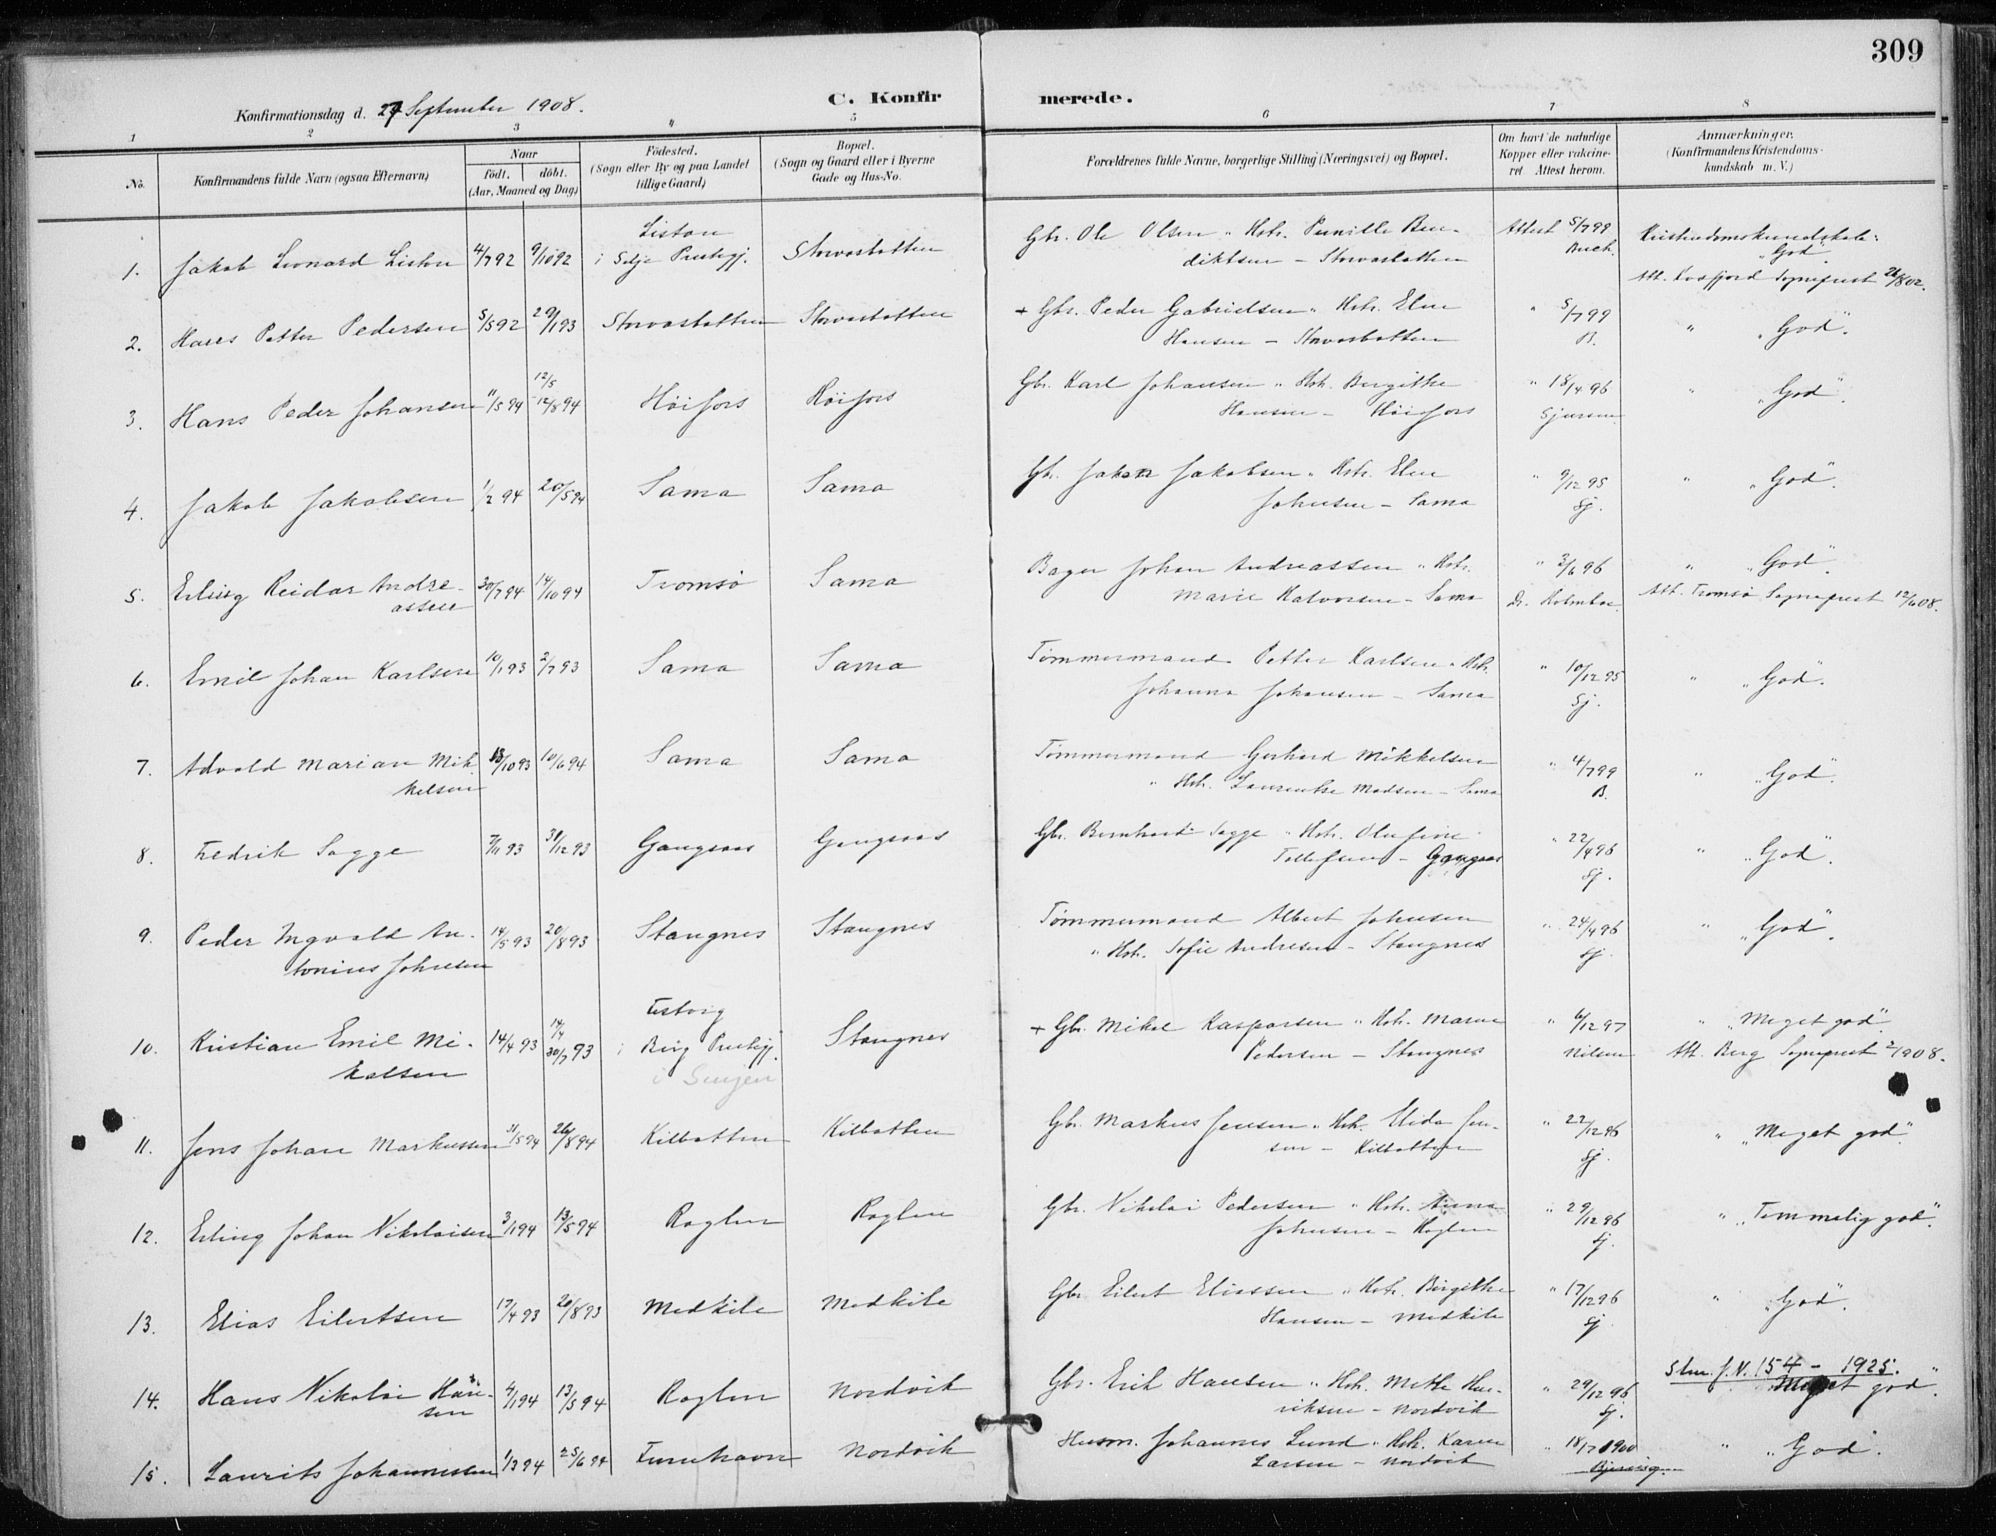 309
C. Konfir merede.
Konfirmationsdag d. 27 September 1908.
1 2 3 4 5 6 7 8
No. Konfirmandens fulde Navn (ogsaa Efternavn) Naar født. døbt. (Aar, Maaned og Dag) Fødested. (Sogn eller By og paa Landet tillige Gaard) Bopæl. (Sogn og Gaard eller i Byerne Gade og Hus-No. Forældrenes fulde Navne, borgerlige Stilling (Næringsvei) og Bopæl. Om havt de naturlige Kopper eller vakcineret Attest herom. Anmærkninger. (Konfirmandens Kristendomskundskab m. V.)
Liston
1. Jakob Leonard Liston 4/7 92 9/10 92 i Selje Prestegj. Storvasbotten Gbr. Ole Olsen " Hstr. Pernille Ben- Attest 5/7 99 Kristendomskundskab:
diktsen – Storvasbotten Buch. "God".
Att. Kvæfjord Sogneprest 26/8 02.
2. Hans Petter Pedersen 5/5 92 29/1 93 Storvasbotten Storvasbotten + Gbr. Peder Gabrielsen " Hstr. Elen " 5/7 99 " "God".
Hansen – Storvasbotten B.
12/5
3. Hans Peder Johansen 11/5 94 12/8 94 Høifors Høifors Gbr. Karl Johansen " Hstr. Bergithe " 18/4 96 " "God".
Hansen – Høifors Sjursen
4. Jakob Jakobsen 1/2 94 20/5 94 Sama Sama Gbr. Jakob Jakobsen " Hstr. Elen " 9/12 95 " "God".
Johnsen – Sama Sj.
5. Erling Reidar Andre- 30/7 94 14/10 94 Tromsø Sama Bager Johan Andreassen " Hstr. " 2/6 96 " "God".
assen Marie Halvorsen – Sama Dr. Holmboe. Att. Tromsø Sogneprest 12/6 08.
6. Emil Johan Karlsen 10/1 93 2/7 93 Sama Sama Tømmermand Petter Karlsen " Hstr. " 10/12 95 " "God".
Johanna Johansen – Sama Sj.
7. Advald Marian Mik- 13/10 93 10/6 94 Sama Sama Tømmermand Gerhard Mikkelsen " 4/7 99 " "God".
kelsen " Hstr. Laurentse Madsen – Sama B.
8. Fredrik Sagge 7/11 93 31/12 93 Gangsaas Gangsaas Gbr. Bernhard Sagge " Hstr. Olufine " 22/4 96 " "God".
Tollefsen – Gangsaas Sj.
9. Peder Ingvald An- 14/5 93 20/8 93 Stangnes Stangnes Tømmermand Albert Johnsen " 24/4 96 " "God".
tonius Johnsen " Hstr. Sofie Andresen – Stangnes Sj.
14/4
10. Kristian Emil Mi- 14/4 93 30/7 93 i Berg Prestegj. Stangnes + Gbr. Mikal Kasparsen " Hstr. Maren " 6/12 97 " "Meget god".
kalsen i Senjen Pedersen – Stangnes Nilsen Att. Berg Sogneprest 2/1 908.
11. Jens Johan Markussen 31/5 94 26/8 94 Kilbotten Kilbotten Gbr. Markus Jensen " Hstr. Jen- " 22/12 96 " "Meget god".
sen – Kilbotten Sj.
12. Erling Johan Nikolaisen 3/1 94 13/5 94 Roglen Roglen Gbr. Nikolai Pedersen " Hstr. Anna " 29/12 96 " "Temmelig god".
Johnsen – Roglen Sj.
13. Elias Eilertsen 17/4 93 20/8 93 Medkile Medkile Gbr. Eilert Eliassen " Hstr. Birgithe " 17/12 96 " "God".
Hansen – Medkile Sj.
Slm. j.N. 154 – 1925.
14. Hans Nikolai Han- 4/1 94 13/5 94 Roglen Nordvik Gbr. Erik Hansen " Hstr. Mette Hen- " 29/12 96 "Meget god".
sen riksen – Nordvik Sj.
15. Laurits Johannessen 1/3 94 25/6 94 Nordvik Husm. Johannes Lund " Hstr. Karen " 18/7 1900 " "God".
Larsen – Nordvik